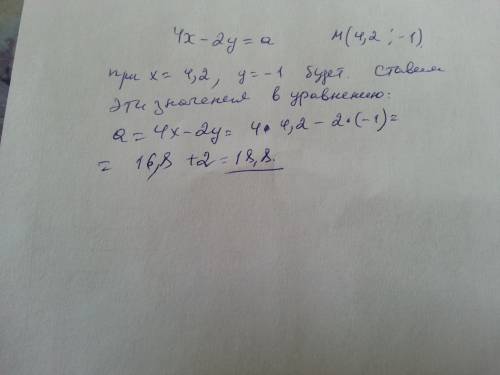 4x-2y=a M(4,2; -1)
при x= 4,2, y=-1 будет. ставим
эти значения в уравнению:
a=4x-2y= 4•4,2-2•(-1)=
= 16,8 +2=18,8.